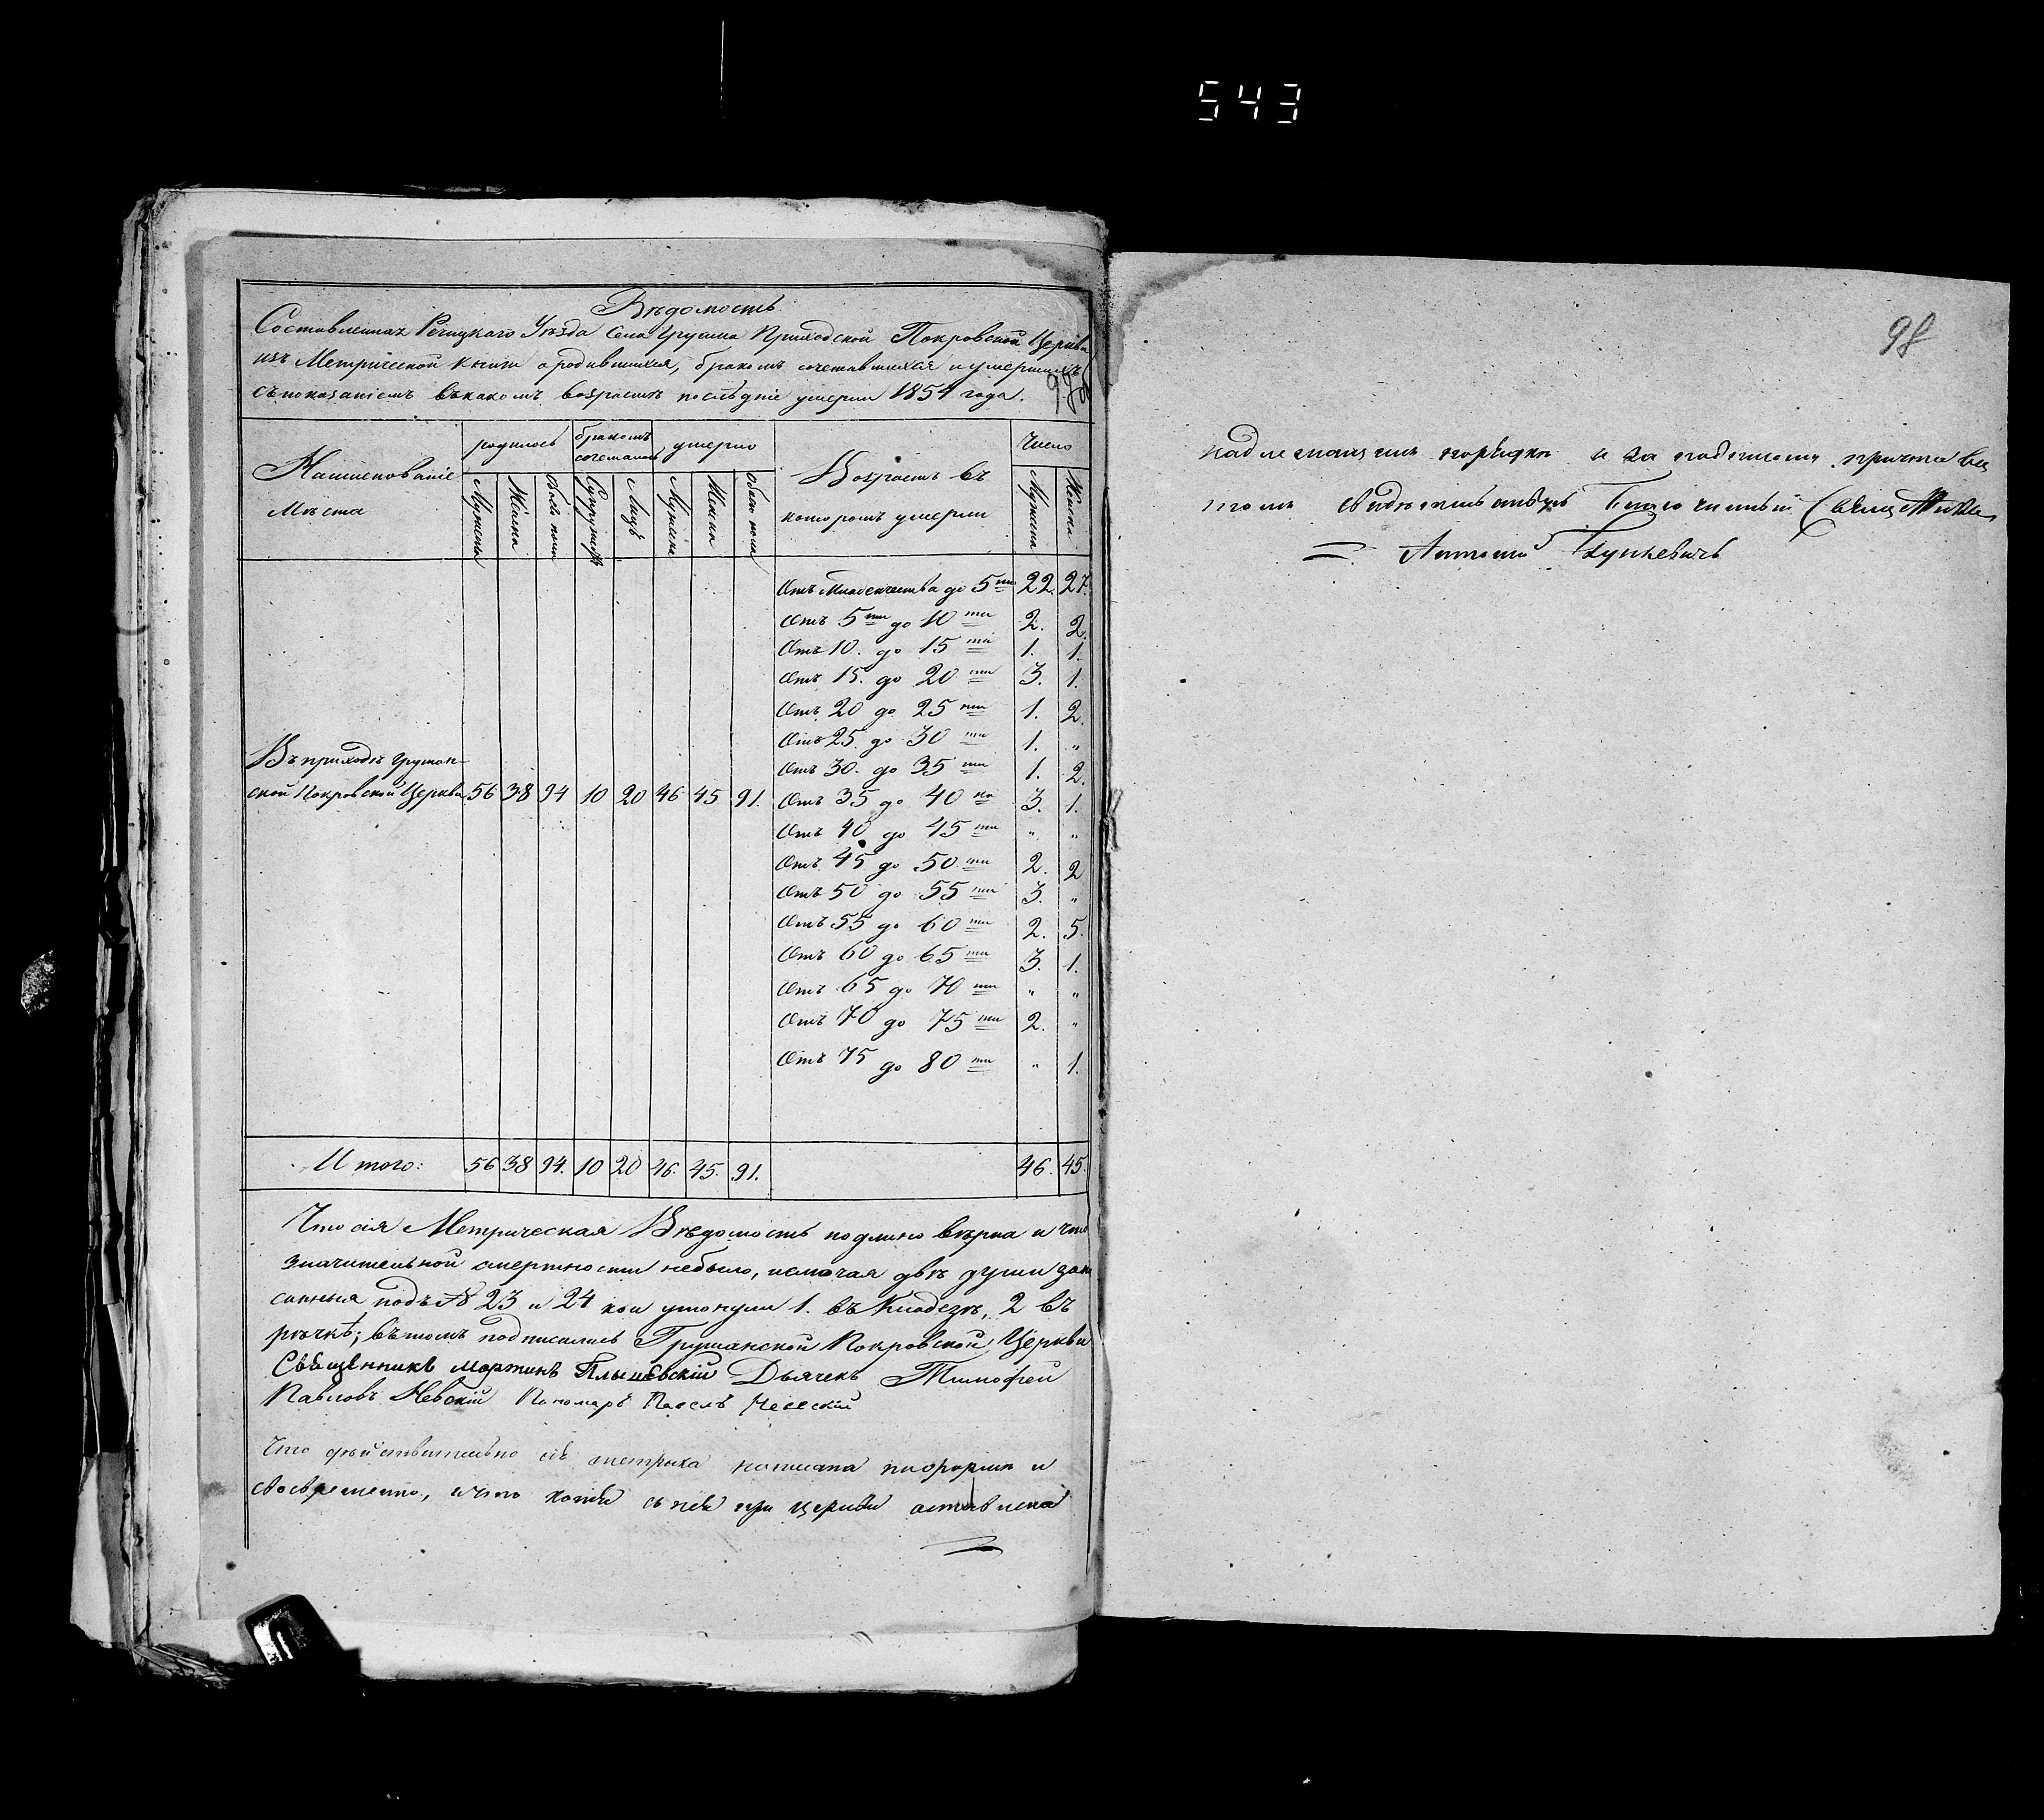 543
Вѣдомость
Составленная Речицкаго Уѣзда Села Грушна Приходской Покровской Церкви
изъ Метрической книги о родившихся, бракомъ сочетавшихся и умершихъ
съ показаніемъ въ какомъ возрастѣ послѣдніе умерли 1854 года.
Наименованіе Мѣста | родилось | бракомъ сочеталось | умерло | Возрастъ въ которомъ умерли | Число
Мужска | Женска | Обоего пола | Супружествъ | Лицъ | Мужска | Женска | Обоего пола | Мужска | Женска
Отъ Младенчества до 5ти 22. 27.
Отъ 5ти до 10ти 2. 2.
Отъ 10. до 15ти 1. 1.
Отъ 15. до 20ти 3. 1.
Отъ 20 до 25ти 1. 2.
Отъ 25 до 30ти 1. "
Отъ 30. до 35ти 1. 2.
Въ приходѣ Грушан-
ской Покровской Церкви 56 38 94 10 20 46 45 91.
Отъ 35 до 40ка 3. 1.
Отъ 40 до 45ти " "
Отъ 45 до 50ти 2. 2
Отъ 50 до 55ти 3. "
Отъ 55 до 60ти 2. 5.
Отъ 60 до 65ти 3. 1.
Отъ 65 до 70ти " "
Отъ 70 до 75ти 2. "
Отъ 75 до 80ти " 1.
Итого: 56 38 94. 10 20 46. 45. 91. 46. 45.
Что сія Метрическая Вѣдомость подлино вѣрна и что
значительной смертности небыло, исключая двѣ души запи
санныя подъ № 23 и 24 кои утонули 1. въ Кладезѣ, 2 въ
рѣчкѣ; въ томъ подписались Грушанской Покровской Церкви
Священникъ Мартинъ Плышевскій Дьячекъ Тимофей
Павловъ Невскій Пономарь Павелъ
Что дѣйствительно сія метрика написана по формѣ и
своевременно, и что копія съ ней при церкви оставлена
98
надлежащемъ порядкѣ и за подписомъ причта въ
томъ свидѣтельствую Благочинный Священникъ
Антоній